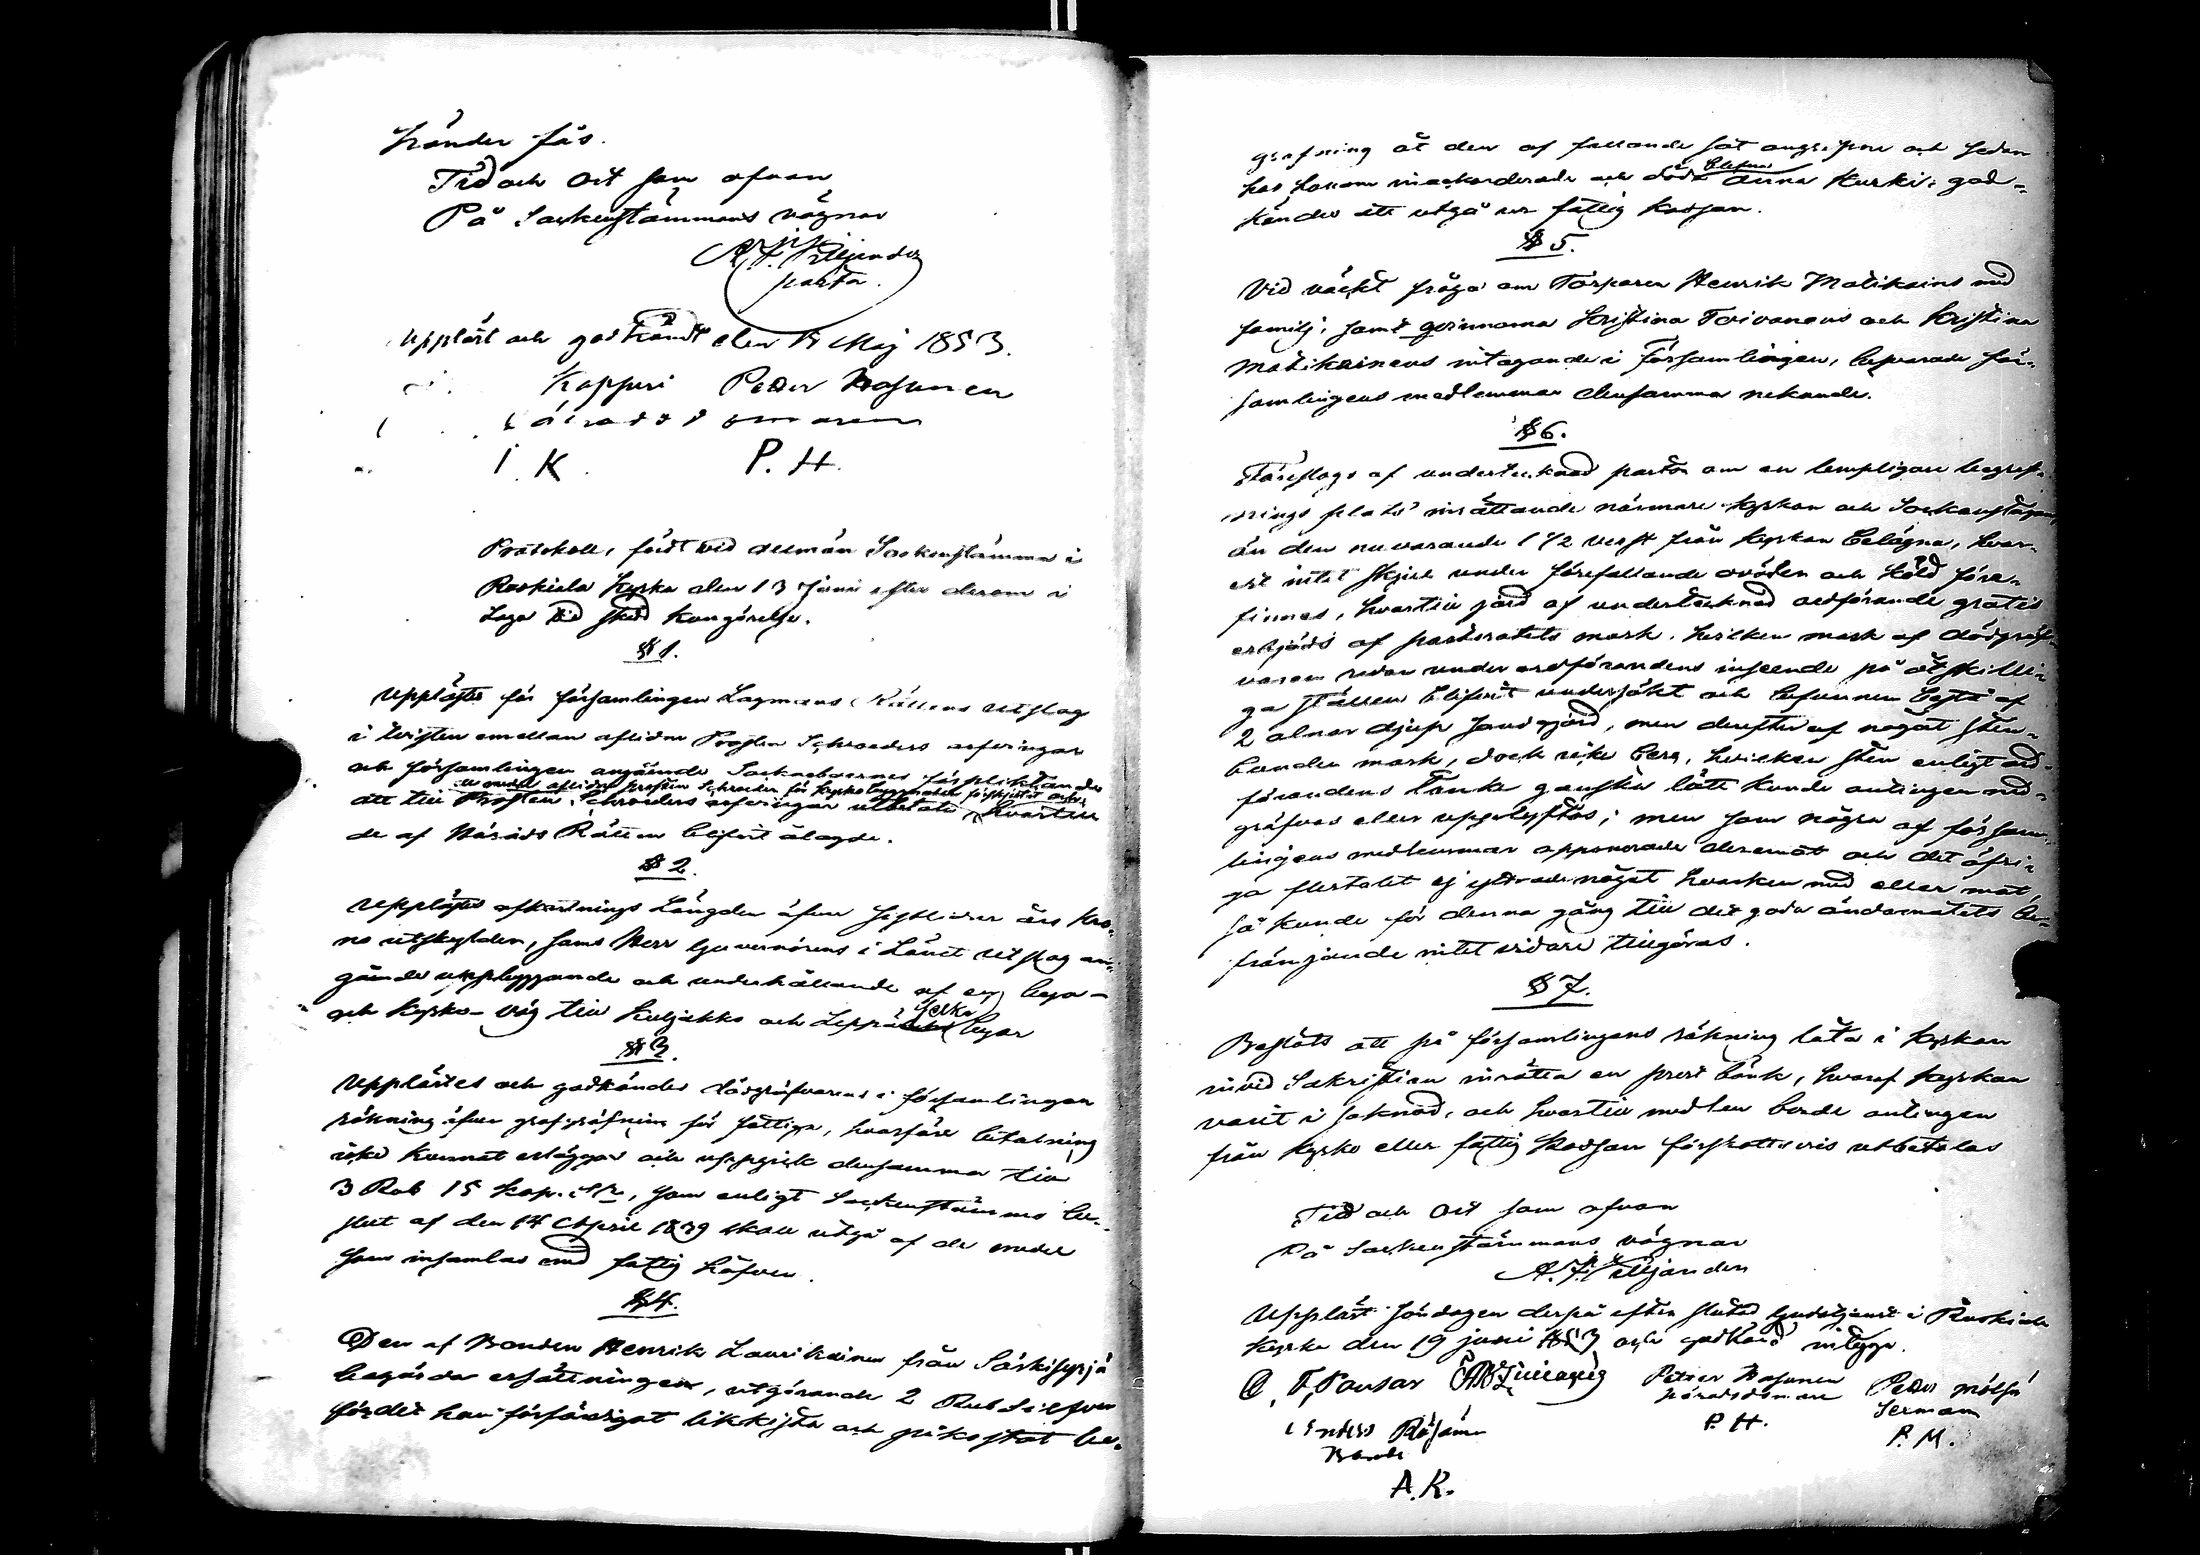 händer fås.
Tid och Ort som ofvan
På Sockenstämmans vägnar
A. F. Kiljander
pastor.
Uppläst och godkändt den Maj 1853.
Peter Hasunen
K P. H.
Protokoll, fördt vid allmän Sockenstämma i
Ruskiala Kyrka den 13 Junii efter derom i
Laga tid skedd kungörelse.
§ 1.
Upplästes för församlingen Lagmans Rättens utslag
i tvisten emellan aflidne Prosten Schroeders arfvingar
och församlingen angående Sockneboernes förpliktande
de medel aflidne prosten Schroeder för kyrkobyggnaden förskjutit
att till Prosten Schroeders arfvingar utbetala, hvartill
de af Härads Rätten blifvit ålagde.
§ 2.
Upplästes afkortnings Längden öfver sistlidne års Kro-
no utskylder, samt Herr Guvernörens i Länet utslag an-
gående uppbyggande och underhållande af en bya-
och Kyrko-väg till Kuljakko och Leppä byar
§ 3.
Upplästes och godkändes dödgräfvarens i församlingen
räkning öfver grafgräfning för fattiga, hvarföre betalning
icke kunnat erläggas och uppgick densamma till
3 Rub 15 Kop. Sr, som enligt Sockenstämmo be-
slut af den 14 April 1839 skall utgå af de medel
som insamlas med fattig håfven.
§ 4.
Den af Bonden Henrik Laurikainen från Särkisyrjä
begärda ersättningen, utgörande 2 Rub Silfver
för det han förfärdigat likkista och påkostat be-
grafning åt den af fallande sot angripne och sedan
hos honom inackorderade och döda Anna Kurki, god-
kändes att utgå ur fattig Kassan.
§ 5.
Vid väckt fråga om Torparen Henrik Matikains med
familj, samt qvinnorna Kristina Toivanens och Kristina
Matikainens intagande i Församlingen, besvarade för-
samlingens medlemmar densamma nekande.
§ 6.
Föreslogs af undertecknad pastor om en lämpligare begraf-
nings plats' inrättande närmare Kyrkan och Sockenstugan,
än den nuvarande 1 1/2 verst från Kyrkan belägna, hvar-
est intet skjul under förefallande oväder och köld före-
finnes, hvartill jord af undertecknad ordförande gratis
erbjöds af pastoratets mark, hvilken mark af dödgräf-
varen redan under ordförandens inseende på åtskilli-
ga ställen blifvit undersökt och befunnen bestå af
2 alnar djup sandjord, men derefter af något sten-
bunden mark, dock icke berg, hvilken sten enligt ord-
förandens tanke ganska lätt kunde antingen ned-
gräfvas eller upplyftas; men som några af försam-
lingens medlemmar opponerade deremot och det öfri-
ga flertalet ej yttrade något hvarken med eller mot,
så kunde för denna gång till det goda ändamålets be-
främjande intet vidare tillgöras.
§ 7.
Beslöts att på församlingens räkning låta i Kyrkan
invid Sakristian inrätta en prest bänk, hvaraf Kyrkan
varit i saknad, och hvartill medlen borde antingen
från Kyrko eller fattig Kassan förskottsvis utbetalas
Tid och Ort som ofvan
På Sockenstämmans vägnar
A. F. Kiljander
Uppläst söndagen derpå efter slutad gudstjenst i Ruskiala
Kyrka den 19 juni 1853 och godkänd intyga.
Petter Hasunen
häradsdomare
P. H.
Peter
P. M.
Bonde
A. R.